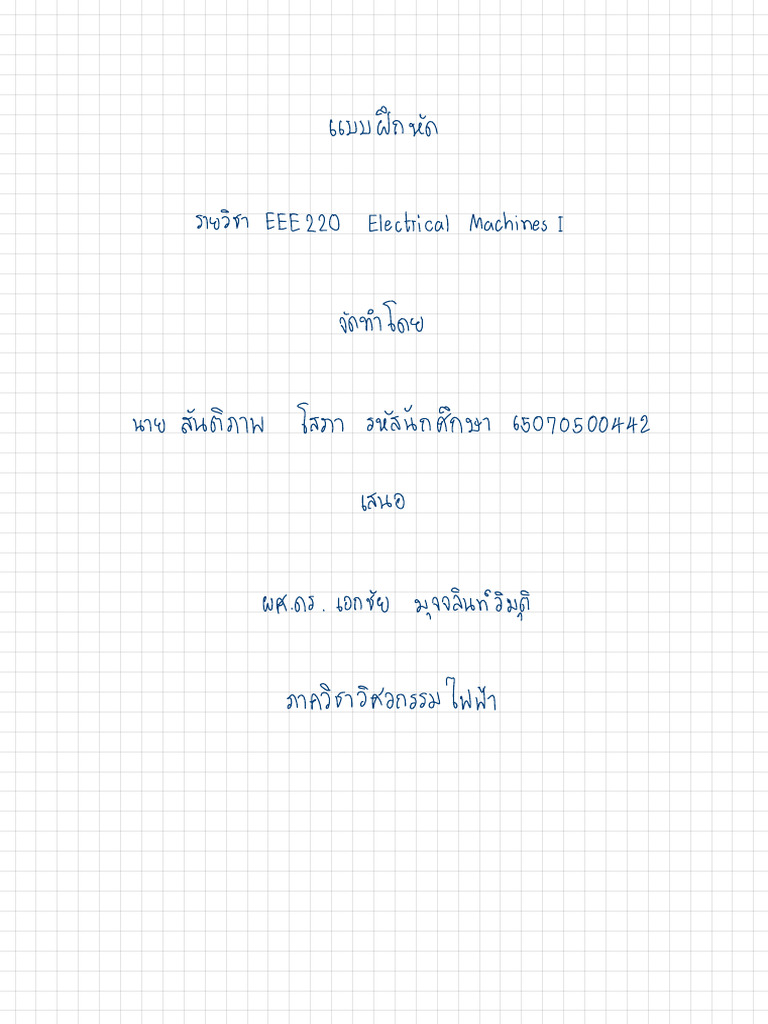 แบบฝึกหัด
รายวิชา EEE220 Electrical Machines I
จัดทำโดย
นาย สันติภาพ โสภา รหัสนักศึกษา 65070500442
เสนอ
ผศ.ดร. เอกชัย มุจจลินท์วิมุติ
ภาควิชาวิศวกรรมไฟฟ้า